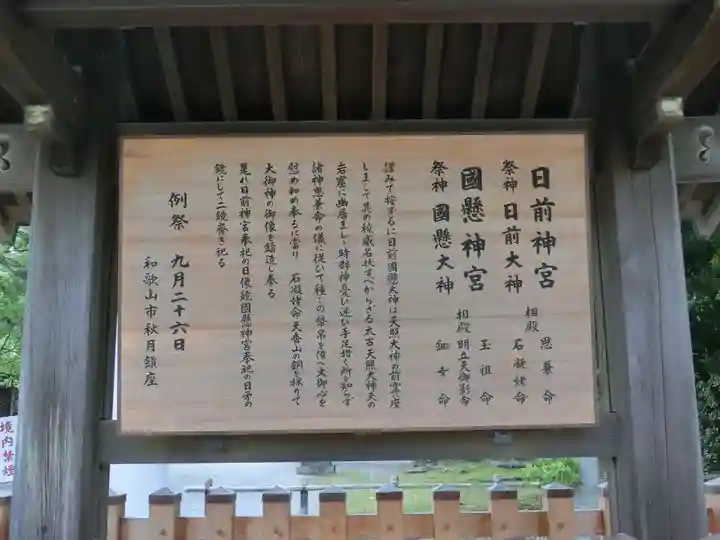 日前神宮
祭神 日前大神
相殿 思兼命
石凝姥命
國懸神宮
祭神 國懸大神
相殿 玉祖命
明立天御影命
鈿女命
謹みて按ずるに日前國懸大神は天照大神の前霊に座
しまして其の稜威名状すべからざる太古天照大神天の
岩窟に幽居ましゝ時群神憂ひ迷ひ手足措く所を知らず
諸神思兼命の議に従いて種々の幣帛を備へ大御心を
慰め和め奉るに當り 石凝姥命天香山の銅を採りて
大御神の御像を鋳造し奉る
是れ日前神宮奉祀の日像鏡國懸神宮奉祀の日矛の
鏡にして二鏡齋き祀る
例祭 九月二十六日
和歌山市秋月鎮座
境内禁煙